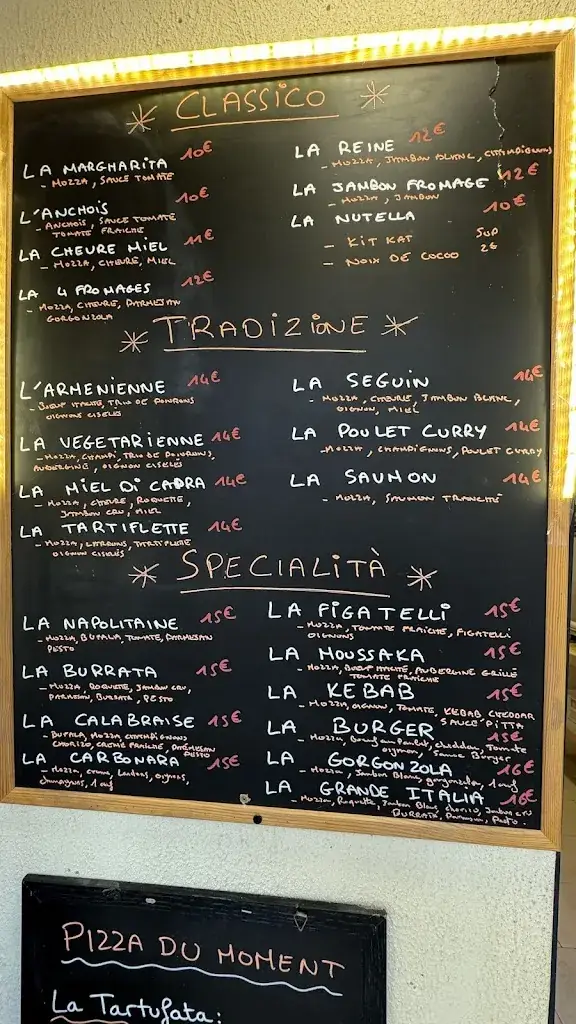 CLASSICO
LA MARGHARITA 10€
- MOZZA, SAUCE TOMATE
L'ANCHOIS 10€
- ANCHOIS, SAUCE TOMATE
TOMATE FRAICHE
LA CHEVRE MIEL 11€
- MOZZA, CHEVRE, MIEL
LA 4 FROMAGES 12€
- MOZZA, CHEVRE, PARMESAN
GORGONZOLA
LA REINE 12€
- MOZZA, JAMBON BLANC, CHAMPIGNONS
LA JAMBON FROMAGE 12€
- MOZZA, JAMBON
LA NUTELLA 10€
- KIT KAT SUP
- NOIX DE COCO 2€
TRADIZIONE
L'ARMENIENNE 14€
- BOEUF HACHÉ, TRIO DE POIVRONS
OIGNONS CISELÉS
LA VEGETARIENNE 14€
- MOZZA, CHAMPI, TRIO DE POIVRONS,
AUBERGINE, OIGNON CISELÉS
LA MIEL DI CAPRA 14€
- MOZZA, CHEVRE, ROQUETTE,
JAMBON CRU, MIEL
LA TARTIFLETTE 14€
- MOZZA, LARDONS, TARTIFLETTE
OIGNON CISELÉS
LA SEGUIN 14€
- MOZZA, CHEVRE, JAMBON BLANC,
OIGNON, MIEL
LA POULET CURRY 14€
- MOZZA, CHAMPIGNONS, POULET CURRY
LA SAUMON 14€
- MOZZA, SAUMON TRANCHÉ
SPECIALITÀ
LA NAPOLITAINE 15€
- MOZZA, BUFALA, TOMATE, PARMESAN
PESTO
LA BURRATA 15€
- MOZZA, ROQUETTE, JAMBON CRU,
PARMESAN, BURRATA, PESTO
LA CALABRAISE 15€
- BUFALA, MOZZA, CHAMPIGNONS
CHORIZO, CREME FRAICHE, PARMESAN
PESTO
LA CARBONARA 15€
- Mozza, creme, Lardons, oignons,
fromages, 1 oeuf
LA FIGATELLI 15€
- MOZZA, TOMATE FRAICHE, FIGATELLI
OIGNONS
LA MOUSSAKA 15€
- MOZZA, BOEUF HACHÉ, AUBERGINE GRILLÉ
TOMATE FRAICHE
LA KEBAB 15€
- MOZZA, OIGNON, TOMATE, KEBAB CHEDDAR
SAUCE PITTA
LA BURGER 15€
- Mozza, Boeuf, cheddar, Tomate
oignon, Sauce Burger
LA GORGONZOLA 16€
- Mozza, Jambon Blanc, gorgonzola, 1 oeuf
LA GRANDE ITALIA 16€
- Mozza, Roquette, Jambon Blanc, chorizo, Jambon cru
BURRATA, Parmesan, Pesto.
PIZZA DU MOMENT
La Tartufata: